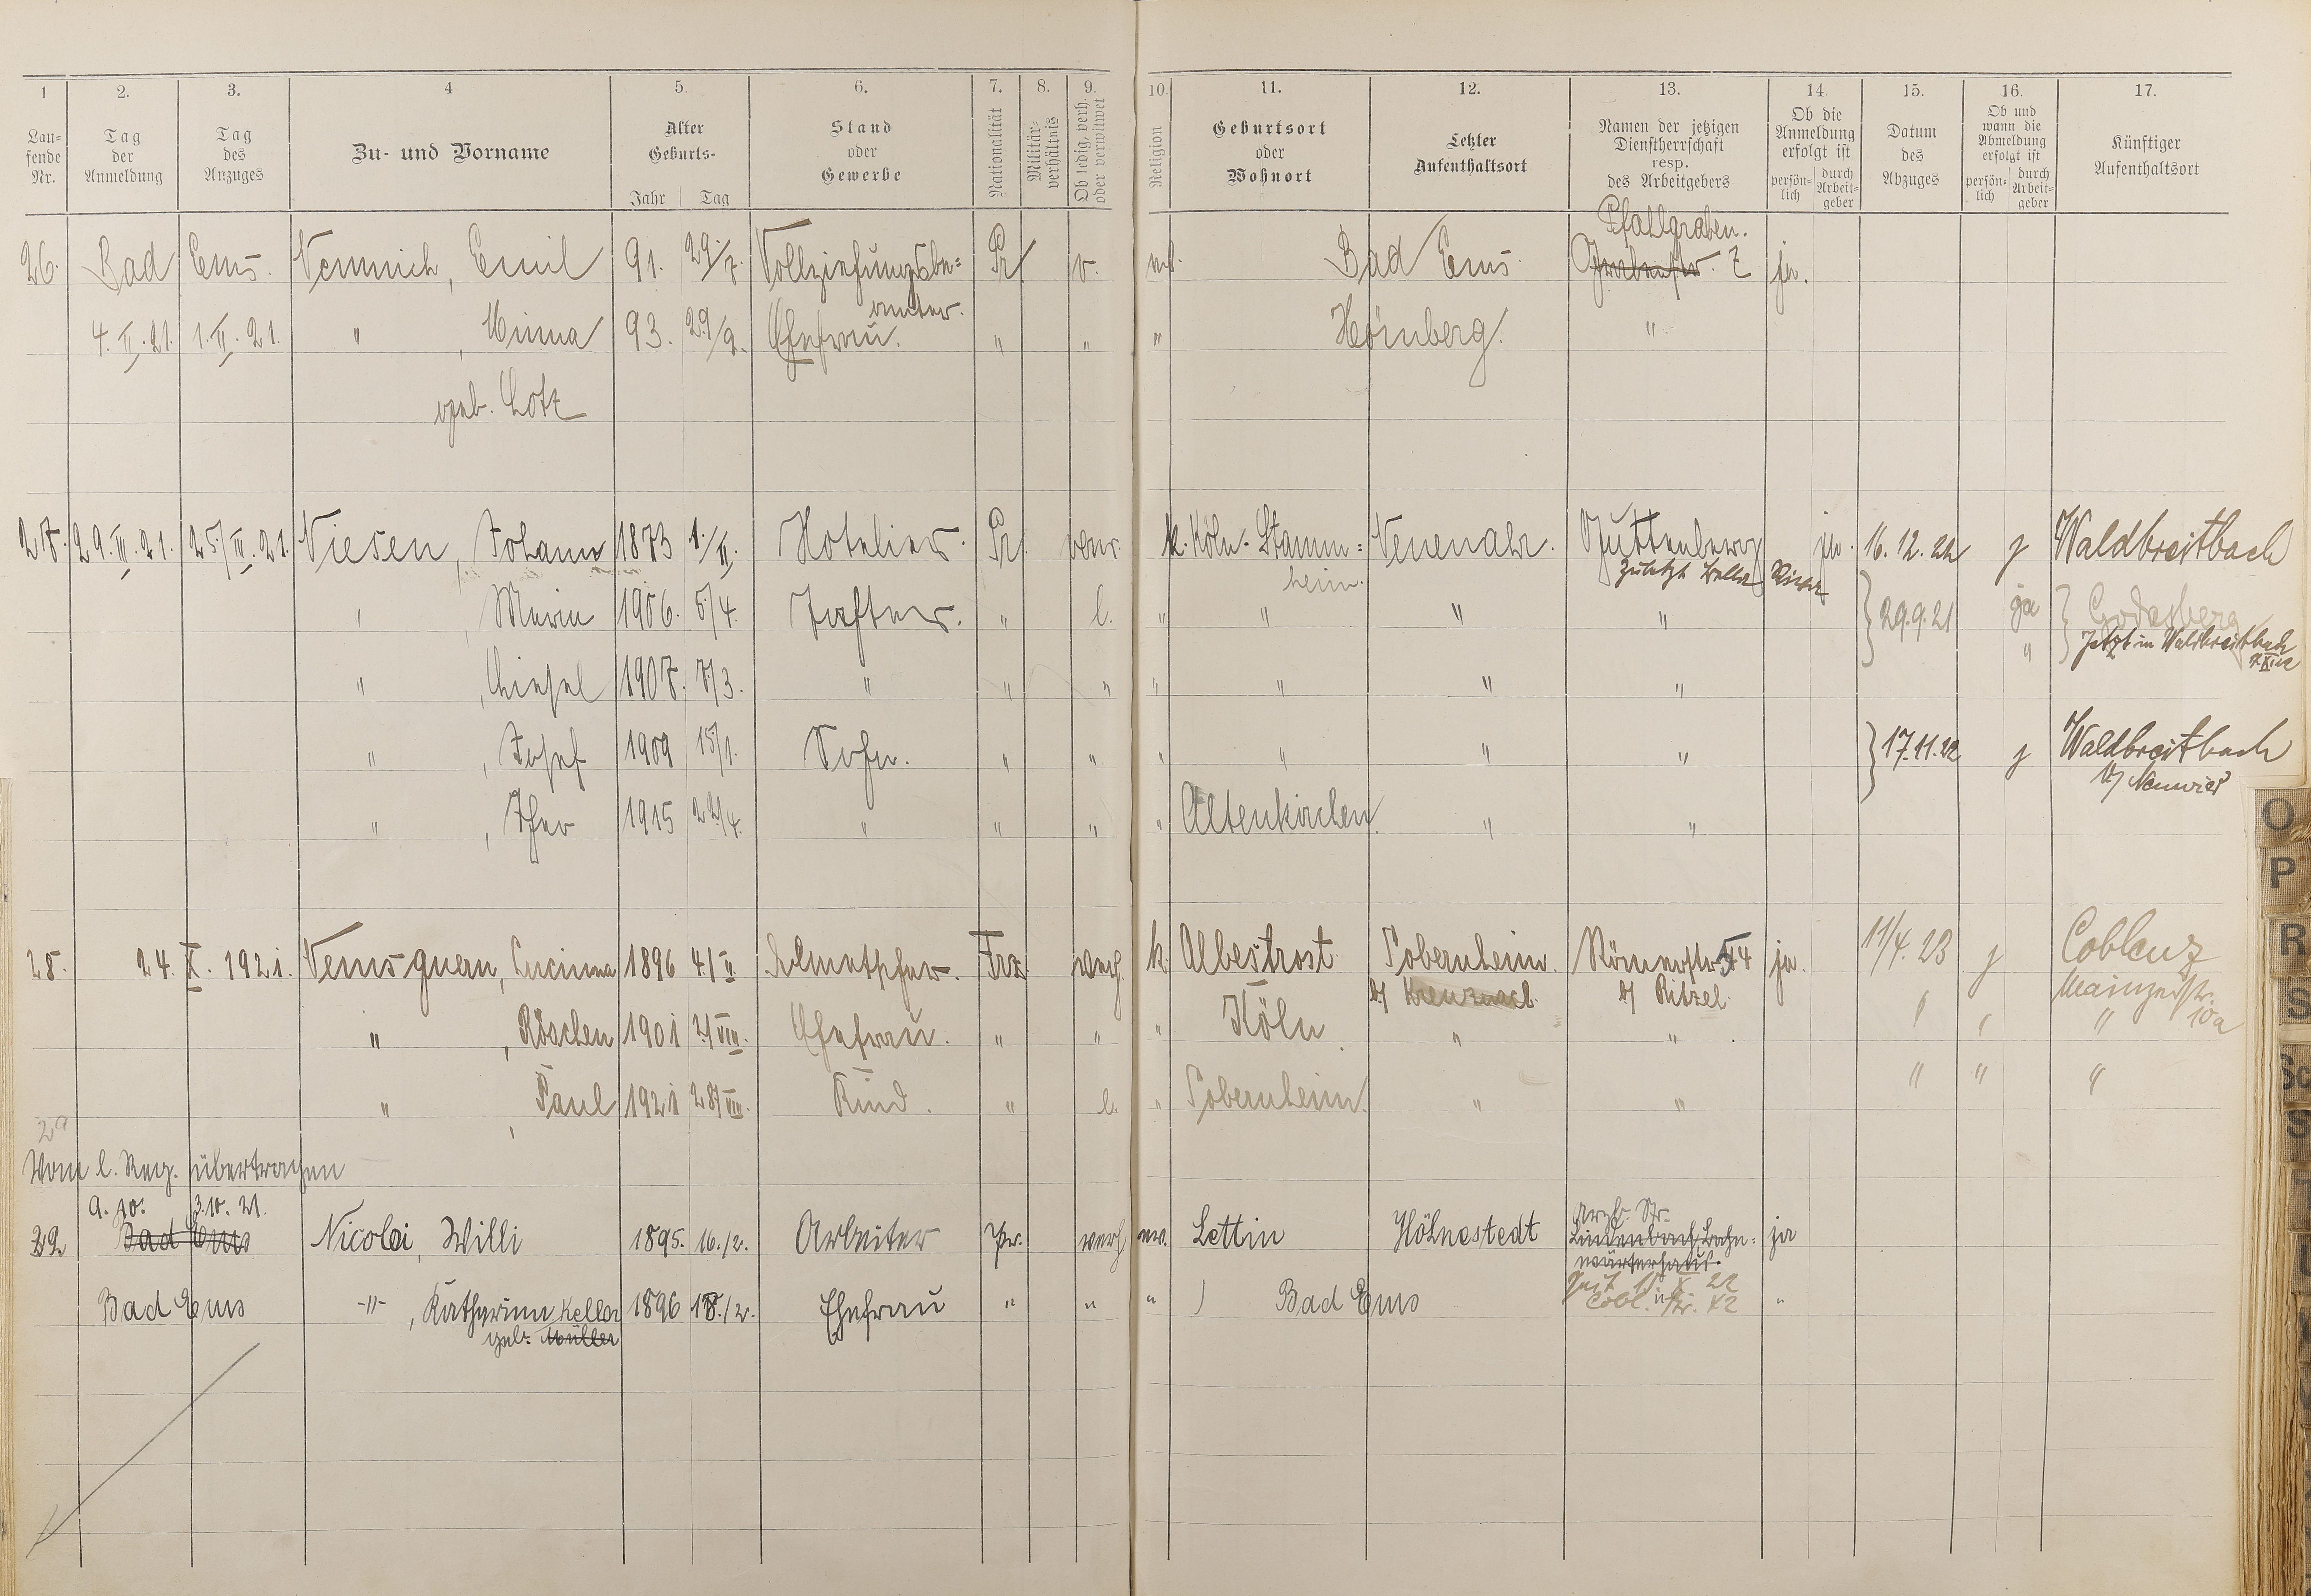 1 2. 3. 4 5. 6. 7. 8. 9. 10. 11. 12. 13. 14. 15. 16. 17.
Lau-
fende
Nr.
Tag
der
Anmeldung
Tag
des
Anzuges
Zu- und Vorname
Alter
Geburts-
Jahr Tag
Stand
oder
Gewerbe
Nationalität
Militär-
verhältnis
Ob ledig, verh.
oder verwitwet
Religion
Geburtsort
oder
Wohnort
Letzter
Aufenthaltsort
Namen der jetzigen
Dienstherrschaft
resp.
des Arbeitgebers
Ob die
Anmeldung
erfolgt ist
persön-
lich
durch
Arbeit-
geber
Datum
des
Abzuges
Ob und
wann die
Abmeldung
erfolgt ist
persön-
lich
durch
Arbeit-
geber
Künftiger
Aufenthaltsort
Pfahlgraben.
26. Bad Ems. Nemnich, Emil 91. 29./7. Vollziehungsbe= Pr. v. Bad Ems. Grabenstr. 7 ja.
amter.
4. II. 21. 1. II. 21. " , Minna 93. 29/9. Ehefrau. " " " Hömberg. "
geb. Lotz
27. 29. III. 21. 25. III. 21. Niesen, Johann 1873 1./II. Hotelier. Pr. verw. k. Köln-Stamm= Nenenahr. Guttenberg ja. 16.12.22 j Waldbreitbach
heim. zuletzt
" , Maria 1906. 5/4. Tochter. " l. " " " " } 29.9.21 ja } Godesberg
" Jetzt in Waldbreitbach
" , Liesel 1907. 7/3. " " " " " " "
" , Josef 1909 15/1. Sohn. " " " " " " } 17.11.22 j Waldbreitbach
b/ Neuwied
" , Theo 1915 22/4. " " " " Altenkirchen. " "
28. 24. X. 1921. Nemsguern, Lucinna 1896 4/II Dolmetscher. Frz verh. k. Albestrost Sobernheim. Römerstr. 44 ja. 11/4. 23 j Coblenz
b/ Kreuznach. b/ Ritzel. Mainzerstr.
" , Röschen 1901 2/VIII. Ehefrau. " " " Köln. " " " 10a
" , Paul 1921 28/VIII. Kind. " l. " Sobernheim. " " " " "
29
Vom l. Reg. übertragen
a. 10. 3.10. 21.
Bad Ems
Nicolai, Willi 1895. 16./2. Arbeiter Pr. verh ev. Lettin Höhnestedt Lindenbach, Bahn= ja
wärterhaus.
Seit X 22
Bad Ems -"- , Katharina Keller 1896 18./2. Ehefrau " " " Bad Ems Cobl. Str. 42 "
geb. Müller
O
P
R
S
Sc
S